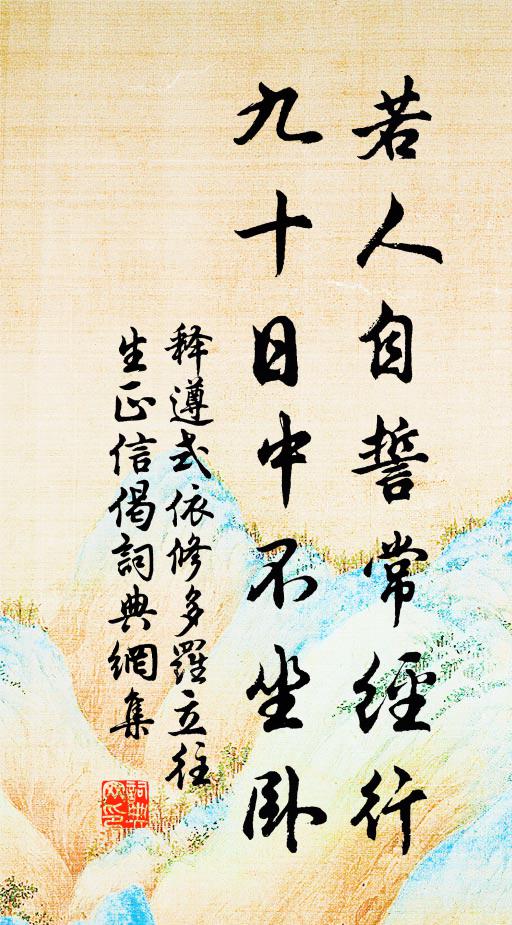 若人自誓常經行
九十日中不坐臥
釋遵式依修多羅立往
生正信偈詞典網集
詞典
網印